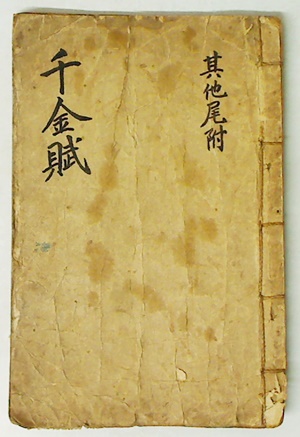 千金賦
其他尾附